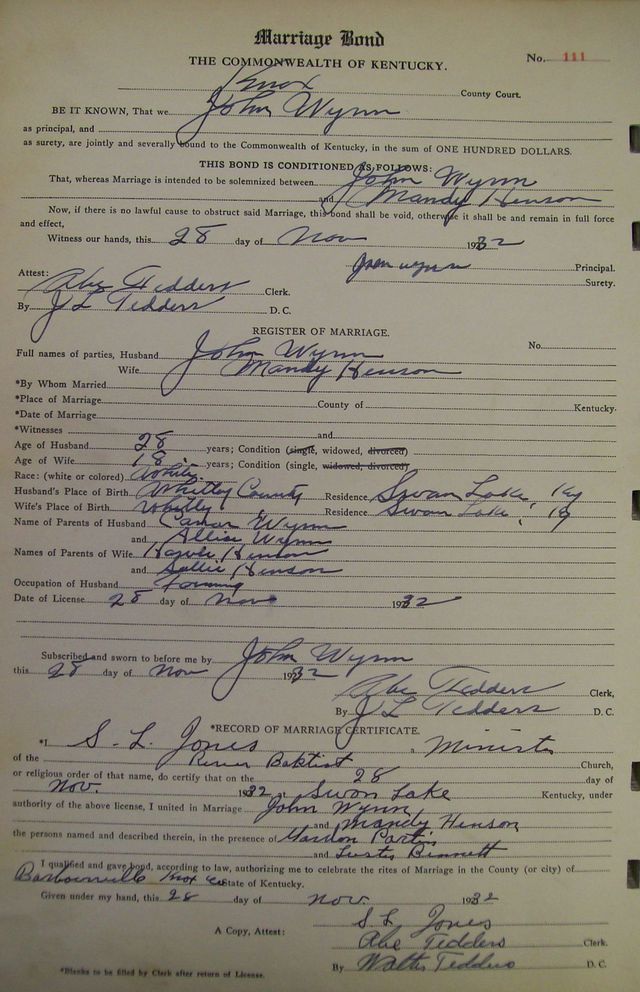 Marriage Bond
THE COMMONWEALTH OF KENTUCKY.
No. 111
Knox County Court.
BE IT KNOWN, That we John Wynn
as principal, and
as surety, are jointly and severally bound to the Commonwealth of Kentucky, in the sum of ONE HUNDRED DOLLARS.
THIS BOND IS CONDITIONED AS FOLLOWS:
That, whereas Marriage is intended to be solemnized between John Wynn
and Mandy Henson
Now, if there is no lawful cause to obstruct said Marriage, this bond shall be void, otherwise it shall be and remain in full force
and effect,
Witness our hands, this 28 day of Nov 1932
John Wynn Principal.
Attest: Surety.
Abe Tedders Clerk.
By J L Tedders D. C.
REGISTER OF MARRIAGE.
Full names of parties, Husband John Wynn No.
Wife Mandy Henson
*By Whom Married
*Place of Marriage County of Kentucky.
*Date of Marriage
*Witnesses and
Age of Husband 28 years; Condition (single, widowed, divorced)
Age of Wife 18 years; Condition (single, widowed, divorced)
Race: (white or colored) White
Husband's Place of Birth Whitley County Residence Swan Lake, Ky
Wife's Place of Birth Whitley Residence Swan Lake, Ky
Name of Parents of Husband Wynn
and Allise Wynn
Names of Parents of Wife Henson
and Sallie Henson
Occupation of Husband Farming
Date of License 28 day of Nov 1932
Subscribed and sworn to before me by John Wynn
this 28 day of Nov 1932
Abe Tedders Clerk,
By J L Tedders D. C.
*RECORD OF MARRIAGE CERTIFICATE.
*I S. L. Jones a Minister
of the Baptist Church,
or religious order of that name, do certify that on the 28 day of
Nov. 1932 Swan Lake Kentucky, under
authority of the above license, I united in Marriage John Wynn
and Mandy Henson
the persons named and described therein, in the presence of
and Bennett
I qualified and gave bond, according to law, authorizing me to celebrate the rites of Marriage in the County (or city) of
Barbourville Knox Co State of Kentucky.
Given under my hand, this 28 day of Nov. 1932
S. L. Jones
A Copy, Attest: Abe Tedders Clerk.
By Walter Tedders D. C.
*Blanks to be filed by Clerk after return of License.